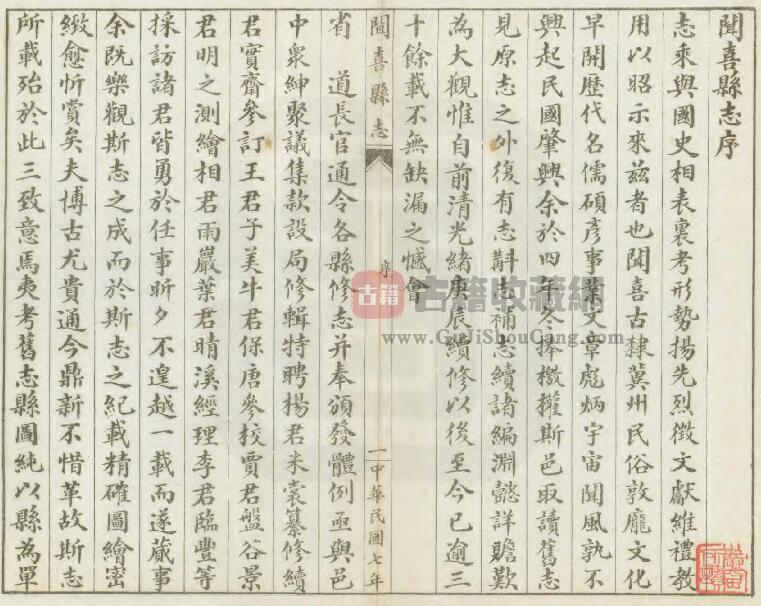 聞喜縣志序
志乘與國史相表裏考形勢揚先烈徵文獻維禮教
用以昭示來茲者也聞喜古隸冀州民俗敦龐文化
早開歷代名儒碩彥事業文章彪炳宇宙聞風孰不
興起民國肇興余於四年冬捧檄擢斯邑取讀舊志
見原志之外復有志斠志補志續諸編淵懿詳贍歎
為大觀惟自前清光緒庚辰續修以後至今已逾三
十餘載不無缺漏之憾會
聞喜縣志
序
一中華民國七年
省 道長官通令各縣修志并奉頒發體例亟與邑
中眾紳聚議集款設局修輯特聘揚君米裳纂修續
君實齋參訂王君子美牛君保唐參校賈君盤谷景
君明之測繪相君雨巖葉君晴溪經理李君臨豐等
採訪諸君皆勇於任事昕夕不遑越一載而遂蕆事
余既樂觀斯志之成而於斯志之紀載精確圖繪密
緻愈忻賞矣夫博古尤貴通今鼎新不惜革故斯志
所載殆於此三致意焉夷考舊志縣圖純以縣為單
古籍
古籍收藏網
www.GuJiShouCang.com